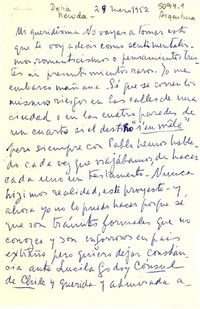 Delia
Neruda -
29 Marzo 1952
5094.1
Argentina
Mi queridísima No vayas a tomar esto
que te voy a decir como sentimentalis-
mo, romanticismo o pensamientos tris-
tes ni presentimientos raros. Yo me
embarco mañana. Sé que se corren los
mismos riesgos en las calles de una
ciudad o en las cuatro paredes de
un cuarto si el destino
pero siempre con Pablo hemos habla-
do cada vez que viajábamos, de hacer
cada uno un testamento. Nunca
hicimos realidad, este proyecto - y
ahora yo no lo puedo hacer porque sé
que son trámites formales que no
conozco y son engorrosos en país
extraño pero quiero dejar constan-
cia ante Lucila Godoy Consul
de Chile y querida y admirada a-